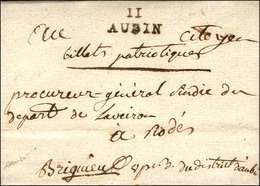 11
AUBIN
citoyen
billets patriotiques
procureur général sindic du
depart de laveiron
a Rodés
Brignieul vpdt du district d'aubin